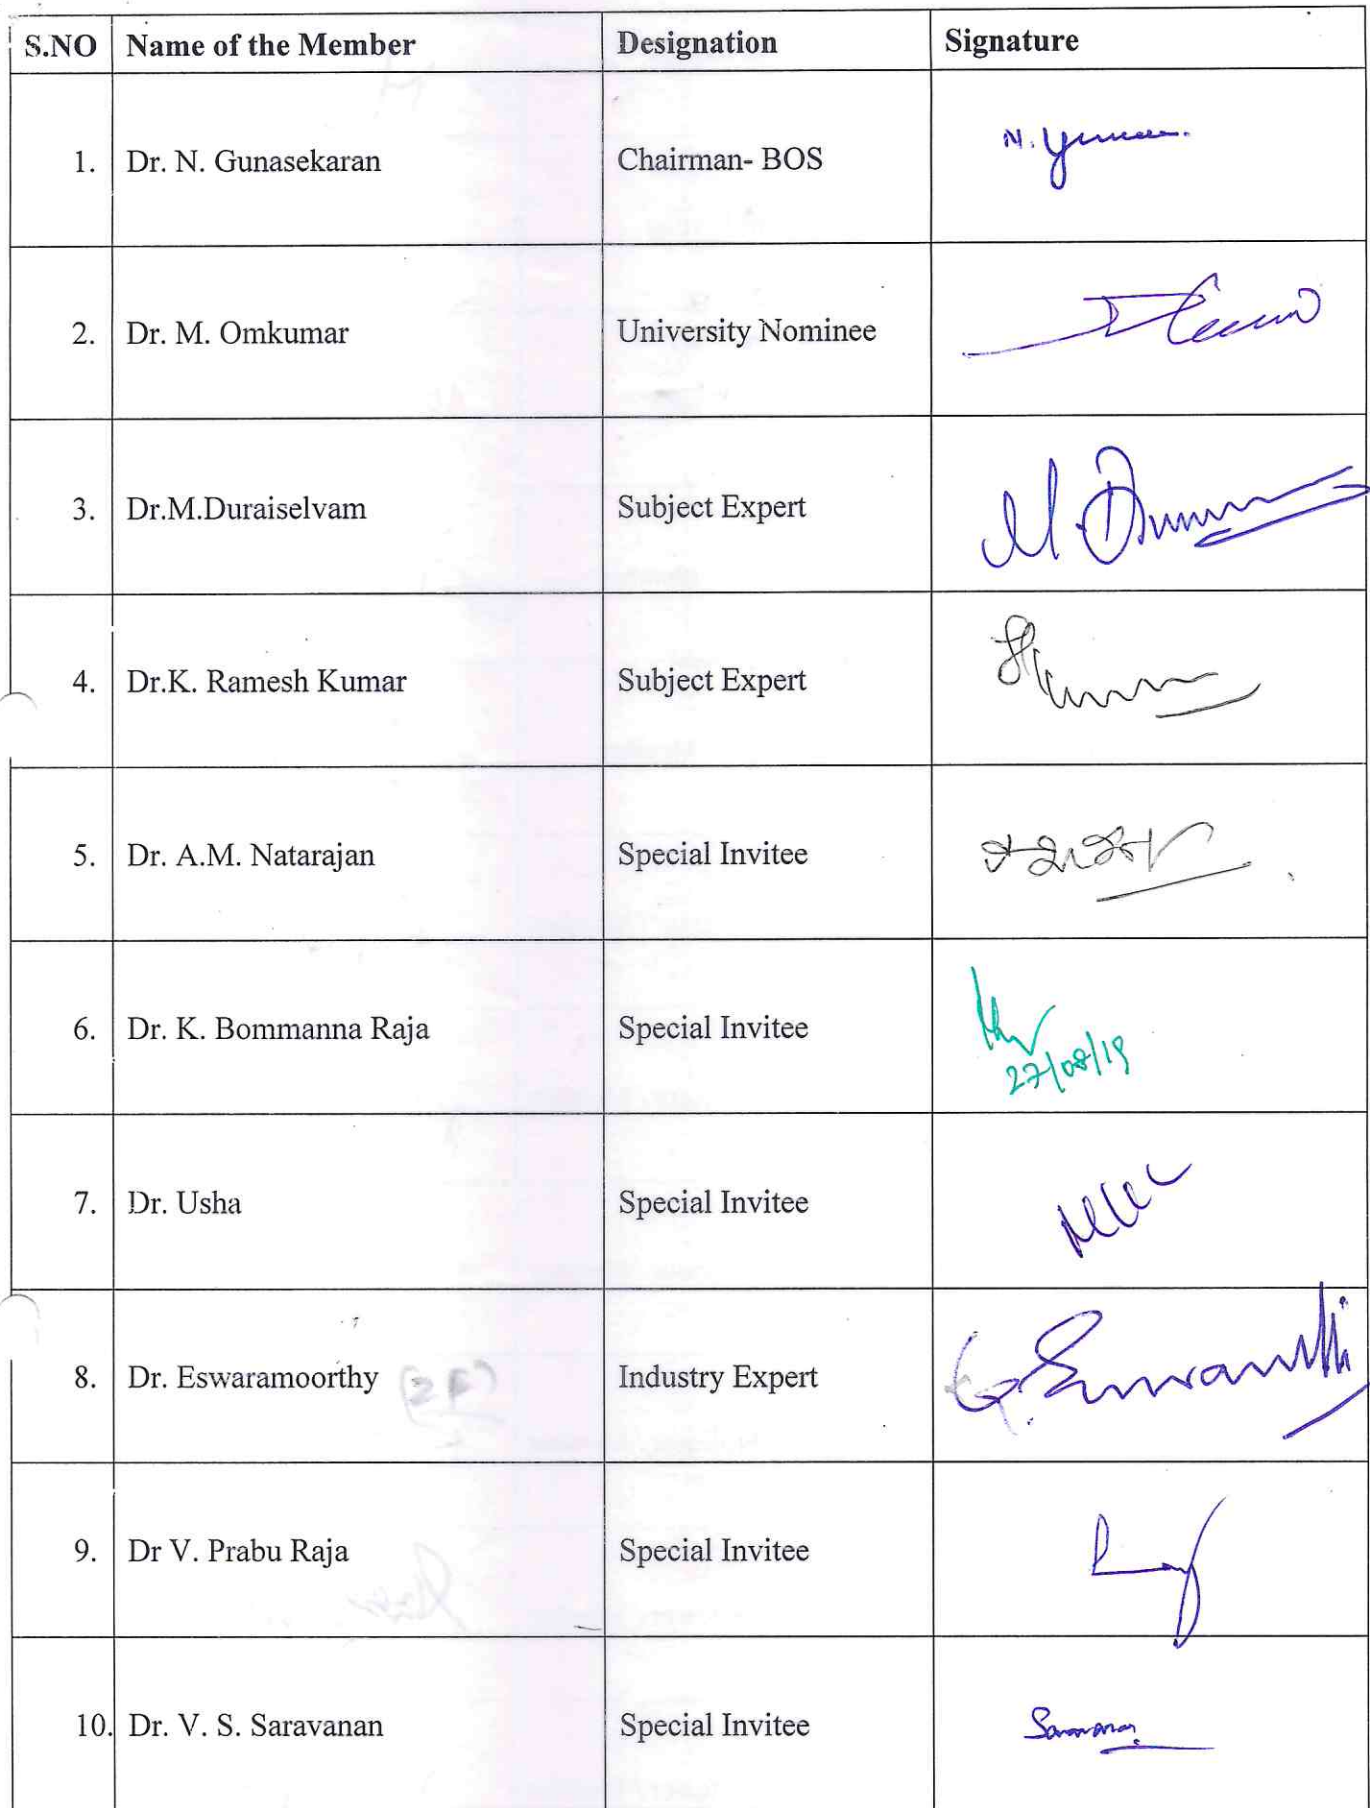 S.NO Name of the Member Designation Signature
1. Dr. N. Gunasekaran Chairman- BOS N.
2. Dr. M. Omkumar University Nominee
3. Dr.M.Duraiselvam Subject Expert M.
4. Dr.K. Ramesh Kumar Subject Expert
5. Dr. A.M. Natarajan Special Invitee
6. Dr. K. Bommanna Raja Special Invitee
27/08/19
7. Dr. Usha Special Invitee
8. Dr. Eswaramoorthy (ZF) Industry Expert
9. Dr V. Prabu Raja Special Invitee
10. Dr. V. S. Saravanan Special Invitee Saravanan